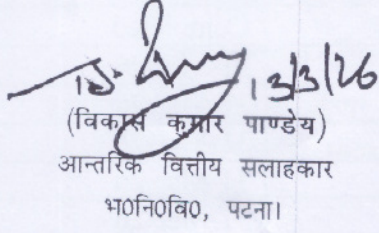 13/3/26
(विकास कुमार पाण्डेय)
आन्तरिक वित्तीय सलाहकार
भ0नि0वि0, पटना।